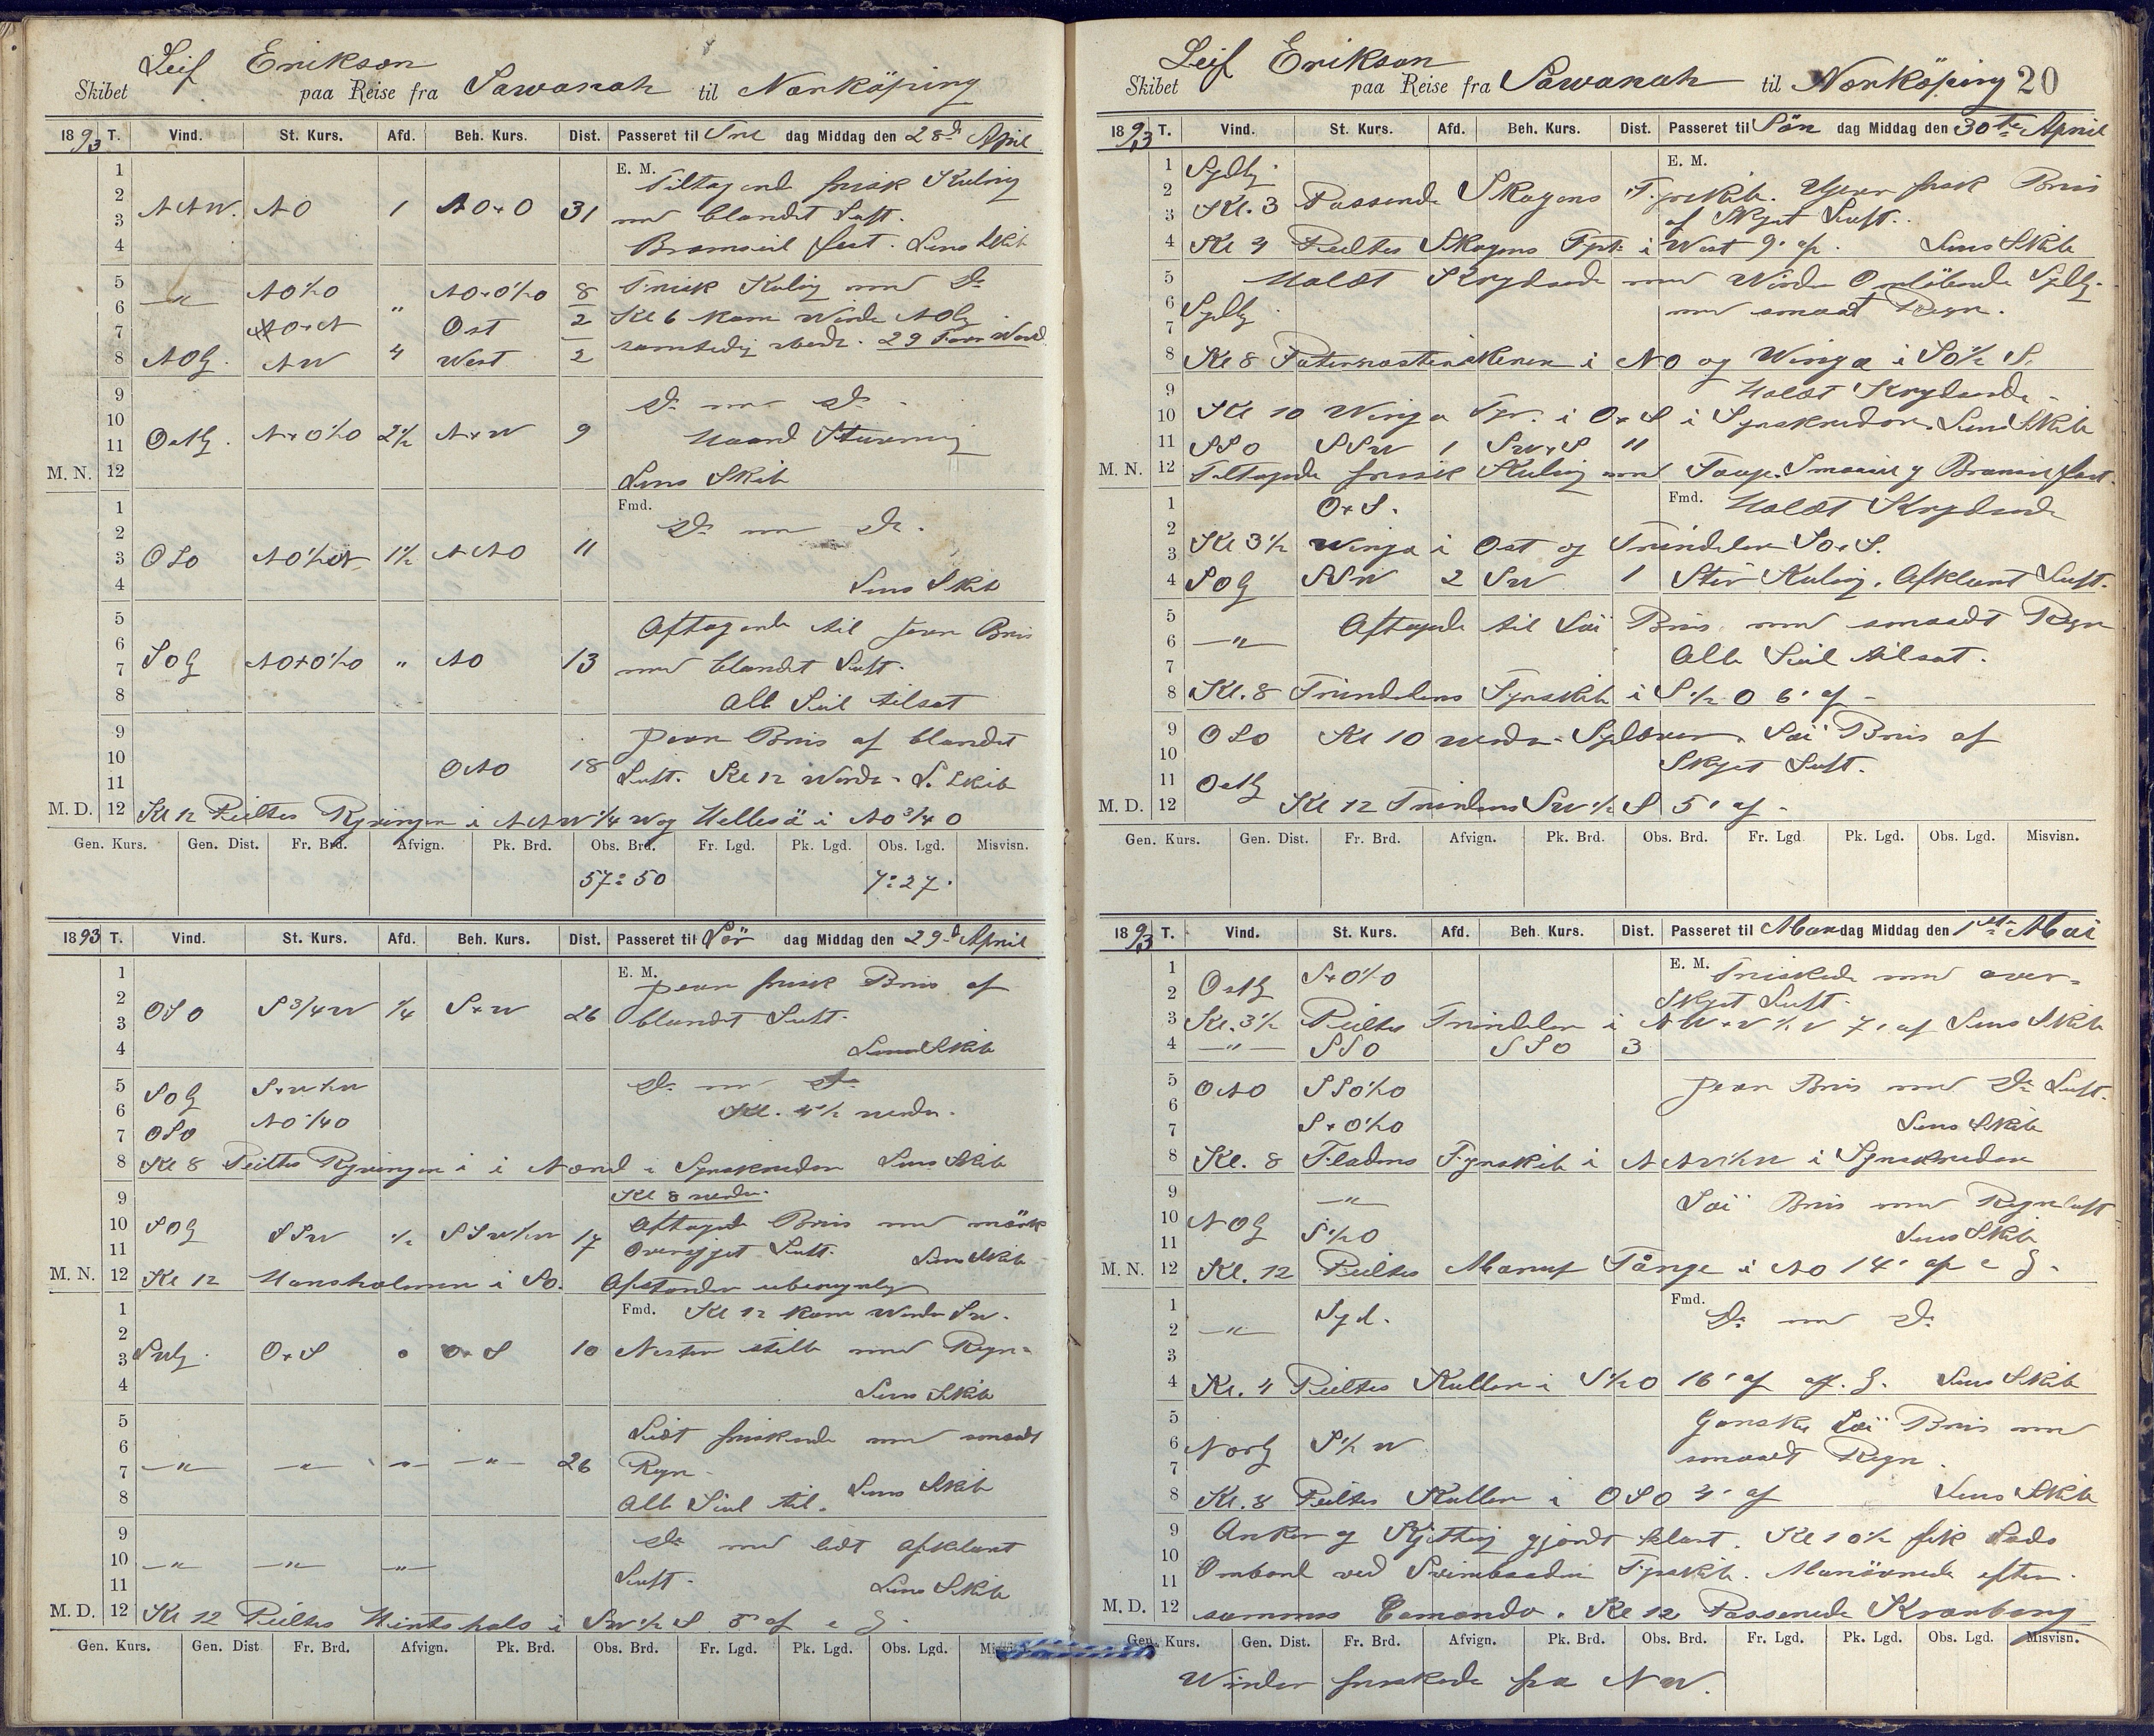 Skibet Leif Erikson paa Reise fra Sawanah til Norköping
1893 T. Vind. St. Kurs. Afd. Beh. Kurs. Dist. Passeret til Fre dag Middag den 28d April
1
E. M.
2 Tiltagende frisk Kuling
3 NNW. NO 1 NO+O 31 med blandet Luft.
4 Bramseil fast. Lens Skib
5 — " — NO½O " NO+O½O 8 Frisk Kuling med Do
6 NO+N Ost 2 Kl 6 kom Winden NOlig
7 samtidig vendt. 29 Favn Wand
8 NOlg. NW 4 West 2
9 Do med Do
10
11 Ostlg. N+O½O 2½ N+W 9 Haard Stamning
M. N. 12 Lens Skib
1 Fmd.
2 Do med Do.
3 OSO NO½N 1½ NNO 11
4 Lens Skib
5 Aftagende til jevn Bris
6
7 SOlg NO+O½O " NO 13 med blandet Luft.
8 Alle Seil tilsat
9 jevn Bris af blandet
10
11 ONO 18 Luft. Kl 12 Wendt. L. Skib
M. D. 12 Kl 12 Peiltes Ryvingen i NNW¼W og Hellesö i NO¾O
Gen. Kurs. Gen. Dist. Fr. Brd. Afvign. Pk. Brd. Obs. Brd. Fr. Lgd. Pk. Lgd. Obs. Lgd. Misvisn.
57:50 7:27.
1893 T. Vind. St. Kurs. Afd. Beh. Kurs. Dist. Passeret til Lör dag Middag den 29d April
1 E. M. jevn frisk Bris af
2
3 OSO S¾W ¼ S+W 26 blandet Luft.
4 Lens Skib
5 SOlg S+W½W Do med Do
6 NO¼O Kl. 4½ vendt.
7 OSO
8 Kl 8 Peiltes Ryvingen i Nord i Synskredsen Lens Skib
9 Kl 8 vendt.
10 SOlg SSW ½ SSW½W 17 Aftagende Bris med mörk
11 overskyet Luft. Lens Skib
M. N. 12 Kl 12 Hansholmen i SO. Afstanden uberegnelig
1 Fmd. Kl 12 kom Winden SW.
2
3 SWlg. O+S 0 O+S 10 Nesten stille med Regn
4 Lens Skib
5 Lidt friskende med smaat
6
7 — " — — " — — " — — " — 26 Regn
8 Alle Seil til. Lens Skib
9 Do med lidt afklaret
10 — " — — " — — " —
11 Luft. Lens Skib
M. D. 12 Kl 12 Peiltes Hirtshals i SW½S af
Gen. Kurs. Gen. Dist Fr. Brd. Afvign. Pk. Brd. Obs. Brd. Fr. Lgd. Pk. Lgd. Obs. Lgd.
Skibet Leif Erikson paa Reise fra Sawanah til Norköping 20
1893 T. Vind. St. Kurs. Afd. Beh. Kurs. Dist. Passeret til Sön dag Middag den 30te April
1 Sydlig E. M.
2
3 Kl. 3 Passerede Skagens Fyrskib. Jevn frisk Bris
af Skyet Luft.
4 Kl 4 Peiltes Skagens Fyrt. i West 9' af. Lens Skib
5 Holdt Krydsende med Winden Omlöbende Sydlg.
6 Sydlg med smaat Regn.
7
8 Kl 8 Paternosterskeren i NO og Winga i SO½S.
9 Holdt Krydsende
10 Kl 10 Winga Fyr. i O+S i Synskredsen. Lens Skib
11 SSO SSW 1 SW+S 11
M. N. 12 Tiltagende frisk Kuling med Taage. Smaaseil og Bramseil fast.
1 O+S. Fmd. Holdt Krydsende
2
3 Kl 3½ Winga i Ost og Trindelen SO+S.
4 SOlg SSW 2 SW 1 Stiv Kuling. Afklaret Luft.
5 Aftagende til Löi Bris med smaadt Regn
6 — " —
7 Alle Seil tilsat.
8 Kl. 8 Trindelens Fyrskib i S½O 6' af
9 OSO Kl 10 vendt. Sydover. Löi Bris af
10 Skyet Luft.
11 Ostlg
M. D. 12 Kl 12 Trindelens SW½S 5' af
Gen. Kurs. Gen. Dist. Fr. Brd. Afvign. Pk. Brd. Obs. Brd. Fr. Lgd Pk. Lgd. Obs. Lgd. Misvisn.
1893 T. Vind. St. Kurs. Afd. Beh. Kurs. Dist. Passeret til Man dag Middag den 1ste Mai
1 Ostlg S+O½O E. M. Friskede med over-
2 skyet Luft.
3 Kl. 3½ Peiltes Trindelen i NW+W½W 7' af Lens Skib
4 — " — SSO SSO 3
5 ONO SSO½O jevn Bris med Do Luft.
6
7 S+O½O Lens Skib
8 Kl. 8 Fladens Fyrskib i NNW½W i Synskredsen
9 — " — Löi Bris med Regnluft
10 NOlg S½O
11 Lens Skib
M. N. 12 Kl. 12 Peiltes Marup Tånge i NO 14' af
1 Syd. Fmd. Do med Do
2 — " —
3
4 Kl. 4 Peiltes Kullen i S½O 16' af Lens Skib
5 Ganske Löi Bris med
6 Nordlg S½W
7 smaadt Regn.
8 Kl. 8 Peiltes Kullen i OSO 4' af Lens Skib
9 Anker og Kjetting gjordt klart. Kl 10½ fik Lods
10
11 Ombord ved Svinebaadens Fyrskib. Manövrerede efter
M. D. 12 sammes Comando. Kl 12 Passerede Kronborg
Gen. Kurs. Gen. Dist. Fr. Brd. Afvign. Pk. Brd. Obs. Brd. Fr. Lgd. Pk. Lgd. Obs. Lgd. Misvisn.
Winden friskede fra NW.